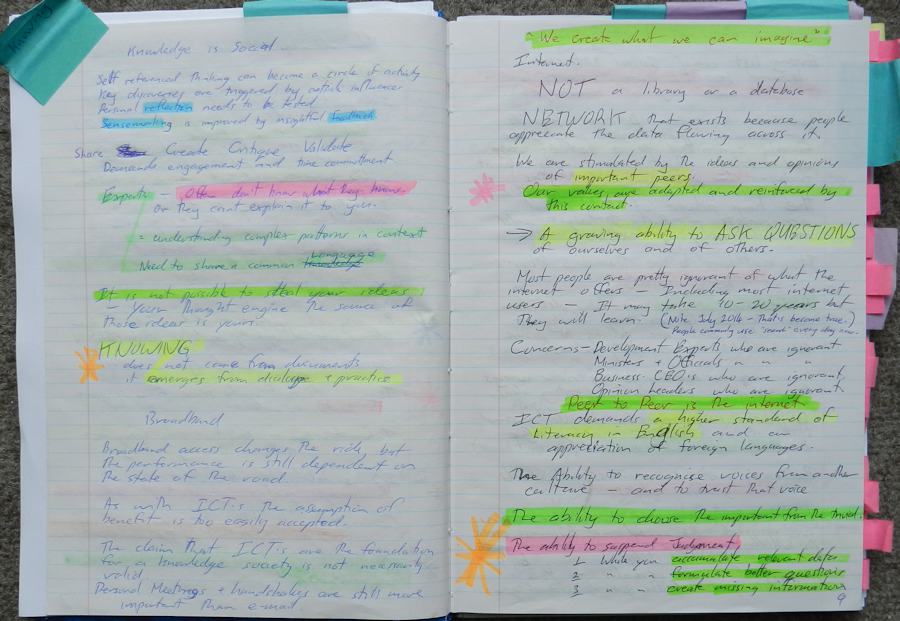 Knowledge is Social
Self referenced thinking can become a circle of activity
Key discoveries are triggered by outside influences
Personal reflection needs to be tested
Sensemaking is improved by insightful feedback
Share Create Critique Validate
Demands engagement and time committment
Experts - Often don't know what they know
or they can't explain it to you.
= understanding complex patterns in context
Need to share a common Language
It is not possible to steal your ideas
Your thought engine the source of
those ideas is yours.
KNOWING
does not come from documents
it emerges from dialogue + practice
Broadband
Broadband access changes the ride, but
the performance is still dependent on
the state of the road.
As with ICT's the assumption of
benefit is too easily accepted.
The claim that ICT's are the foundation
for a knowledge society is not necessarily
valid
Personal Meetings + handshakes are still more
important than e-mail
"We create what we can imagine"
Internet.
NOT a library or a database
NETWORK that exists because people
appreciate the data flowing across it.
We are stimulated by the ideas and opinions
of important peers.
Our values are adapted and reinforced by
this contact.
→ A growing ability to ASK QUESTIONS
of ourselves and of others.
Most people are pretty ignorant of what the
internet offers - Including most internet
users - It may take 10-20 years but
They will learn. (Note July 2014 - That's become true.)
People commonly use 'search' every day now.
Concerns - Development Experts who are ignorant
Ministers + Officials " "
Business CEO's who are ignorant
Opinion leaders who are ignorant
Peer to Peer is the internet
ICT demands a higher standard of
Literacy in English and an
appreciation of foreign languages.
The Ability to recognise voices from another
culture - and to trust that voice
The ability to choose the important from the trivial.
The ability to suspend Judgement
1 While you accumulate relevant data
2 " " formulate better questions
3 " " create missing information
9